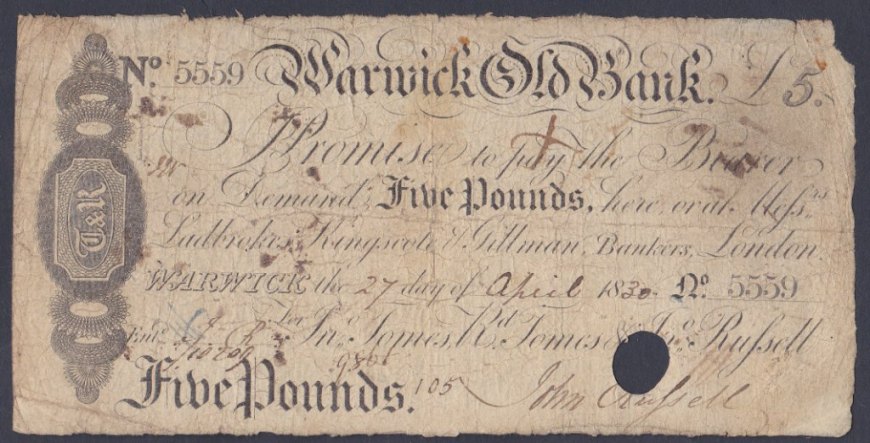 No. 5559 Warwick Old Bank. £5.
I Promise to pay the Bearer
on Demand Five Pounds, here, or at Messrs
Ladbrokes, Kingscote & Gillman, Bankers, London.
WARWICK the 27 day of April 1830 No. 5559
For Jno. Tomes, Rd. Tomes & Jno. Russell
Entd.
Five Pounds. 105 John Russell
T&R